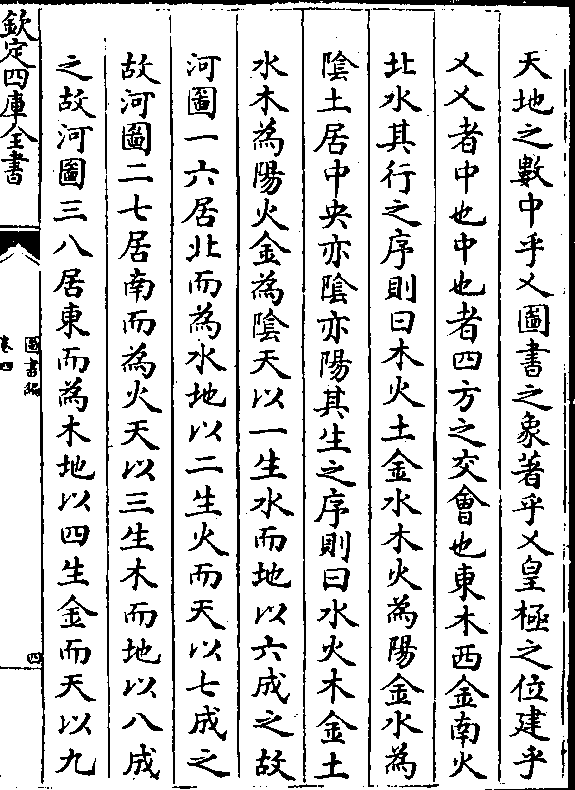 天地之數中乎㐅圖書之象著乎㐅皇極之位建乎
㐅㐅者中也中也者四方之交會也東木西金南火
北水其行之序則曰木火土金水木火為陽金水為
陰土居中央亦陰亦陽其生之序則曰水火木金土
水木為陽火金為陰天以一生水而地以六成之故
河圖一六居北而為水地以二生火而天以七成之
故河圖二七居南而為火天以三生木而地以八成
之故河圖三八居東而為木地以四生金而天以九
欽定四庫全書
圖書編
卷四
四